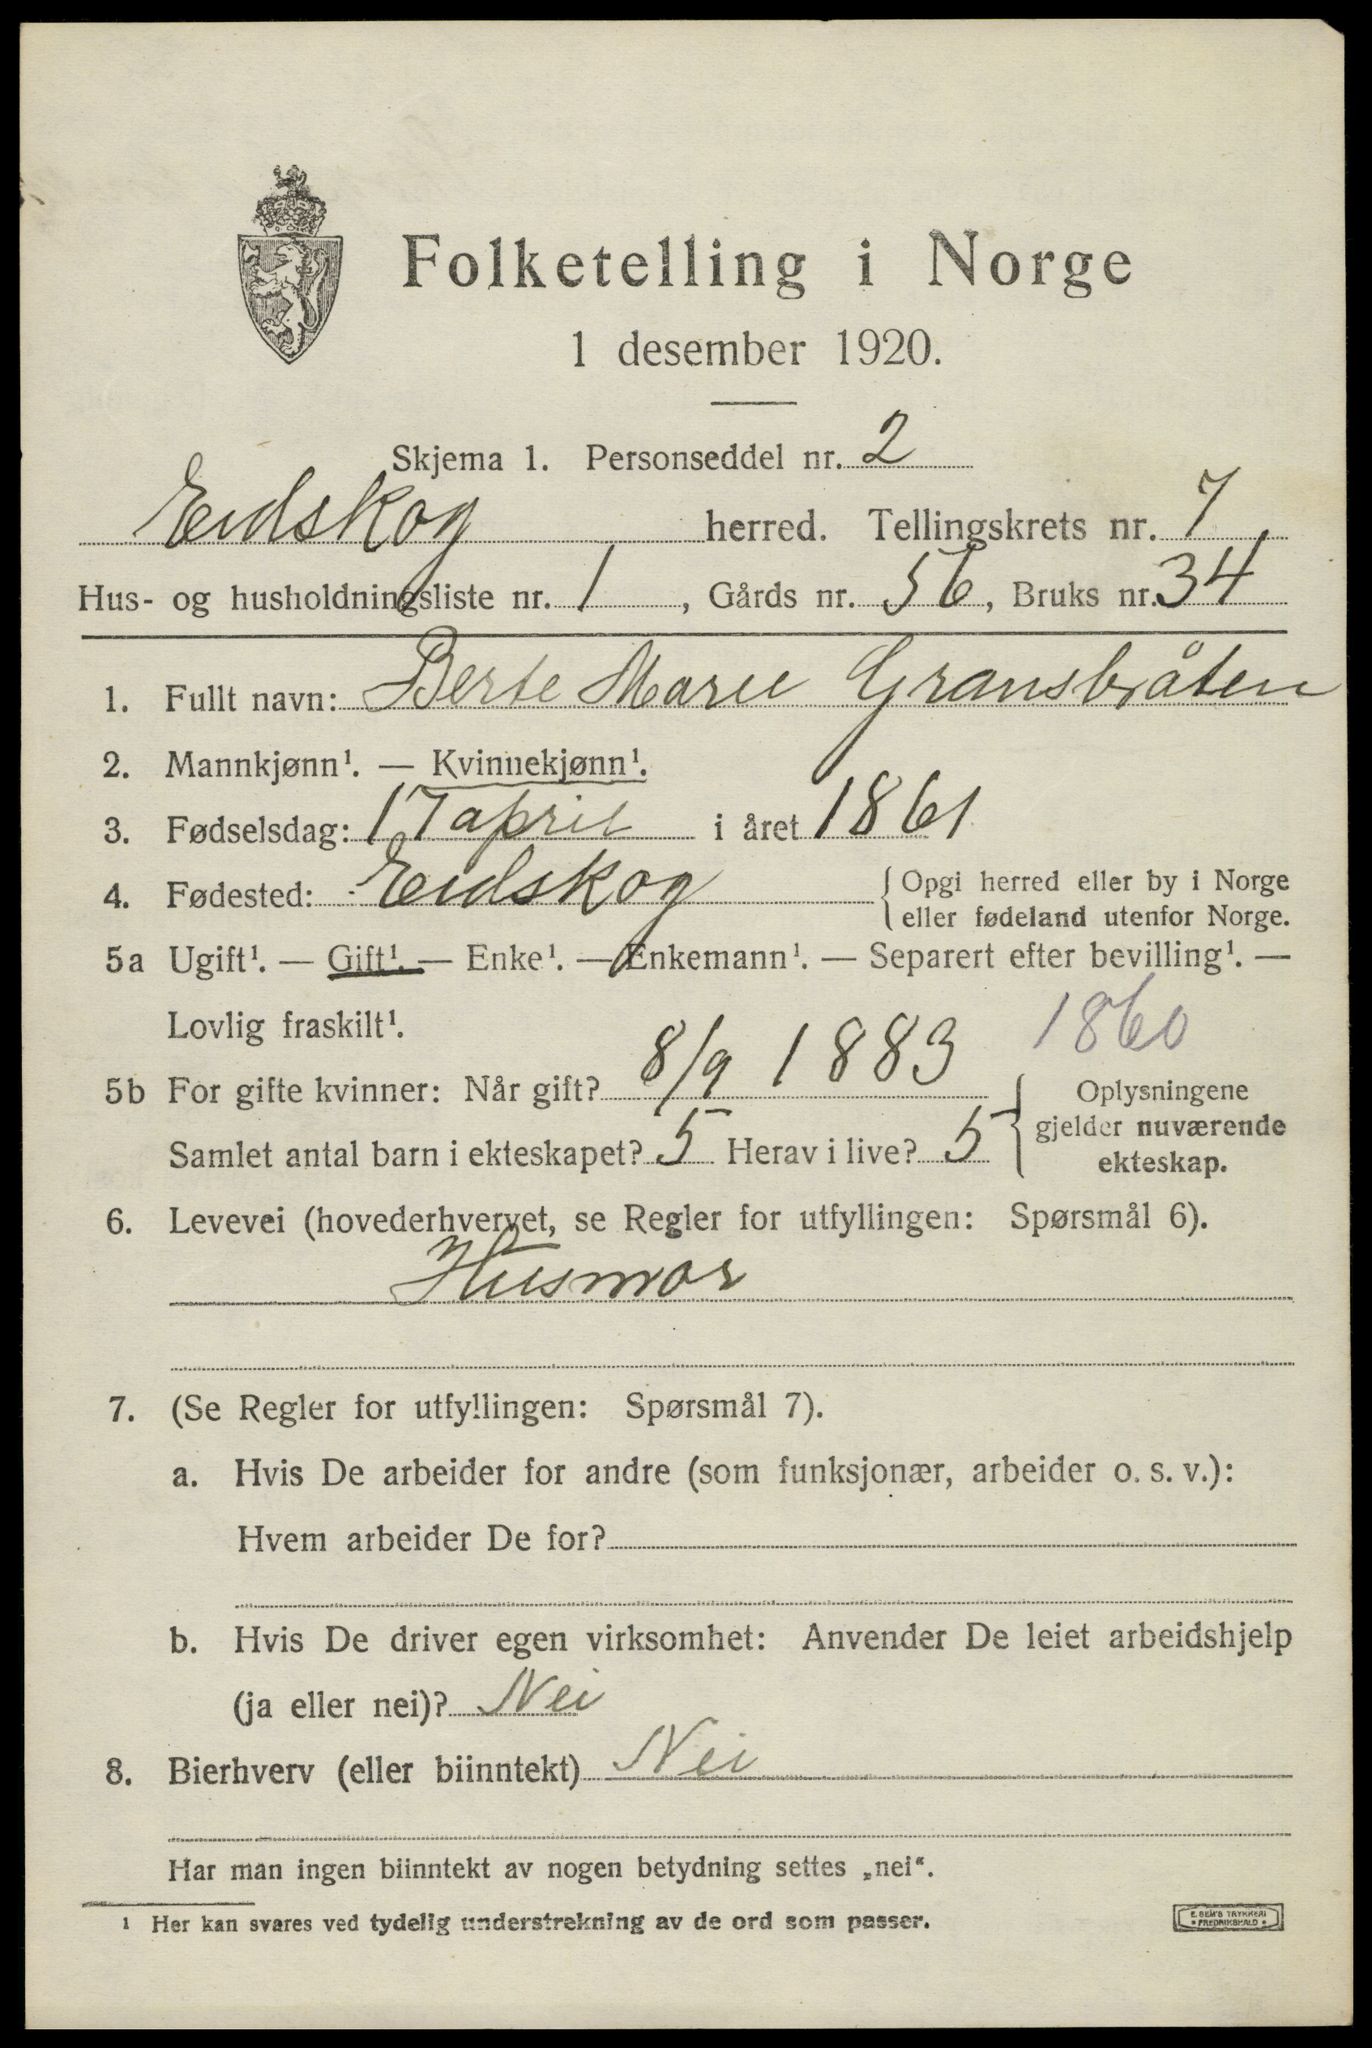 Folketelling i Norge
1 desember 1920.
Skjema 1. Personseddel nr. 2
Eidskog herred. Tellingskrets nr. 7
Hus- og husholdningsliste nr. 1, Gårds nr. 56, Bruks nr. 34
1. Fullt navn: Berte Marie Gransbråten
2. Mannkjønn¹. — Kvinnekjønn¹.
3. Fødselsdag: 17 april i året 1861
4. Fødested: Eidskog { Opgi herred eller by i Norge
eller fødeland utenfor Norge.
5a Ugift¹. — Gift¹. — Enke¹. — Enkemann¹. — Separert efter bevilling¹. —
Lovlig fraskilt¹.
1860
5b For gifte kvinner: Når gift? 8/9 1883
Samlet antal barn i ekteskapet? 5 Herav i live? 5
Oplysningene
gjelder nuværende
ekteskap.
6. Levevei (hovederhvervet, se Regler for utfyllingen: Spørsmål 6).
Husmor
7. (Se Regler for utfyllingen: Spørsmål 7).
a. Hvis De arbeider for andre (som funksjonær, arbeider o. s. v.):
Hvem arbeider De for?
b. Hvis De driver egen virksomhet: Anvender De leiet arbeidshjelp
(ja eller nei)? Nei
8. Bierhverv (eller biinntekt) Nei
Har man ingen biinntekt av nogen betydning settes „nei“.
¹ Her kan svares ved tydelig understrekning av de ord som passer.
E. SEM'S TRYKKERI
• FREDRIKSHALD •